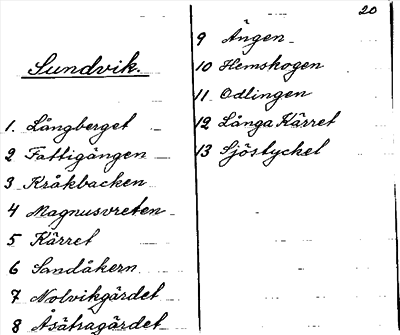 Sundvik.
1. Långberget
2 Fattigängen
3 Kråkbacken
4 Magnusvreten
5 Kärret
6 Sandåkern
7 Nolvikgärdet
8 Åsätragärdet
20
9 Ängen
10 Hemskogen
11 Odlingen
12 Långa Kärret
13 Sjöstyckel